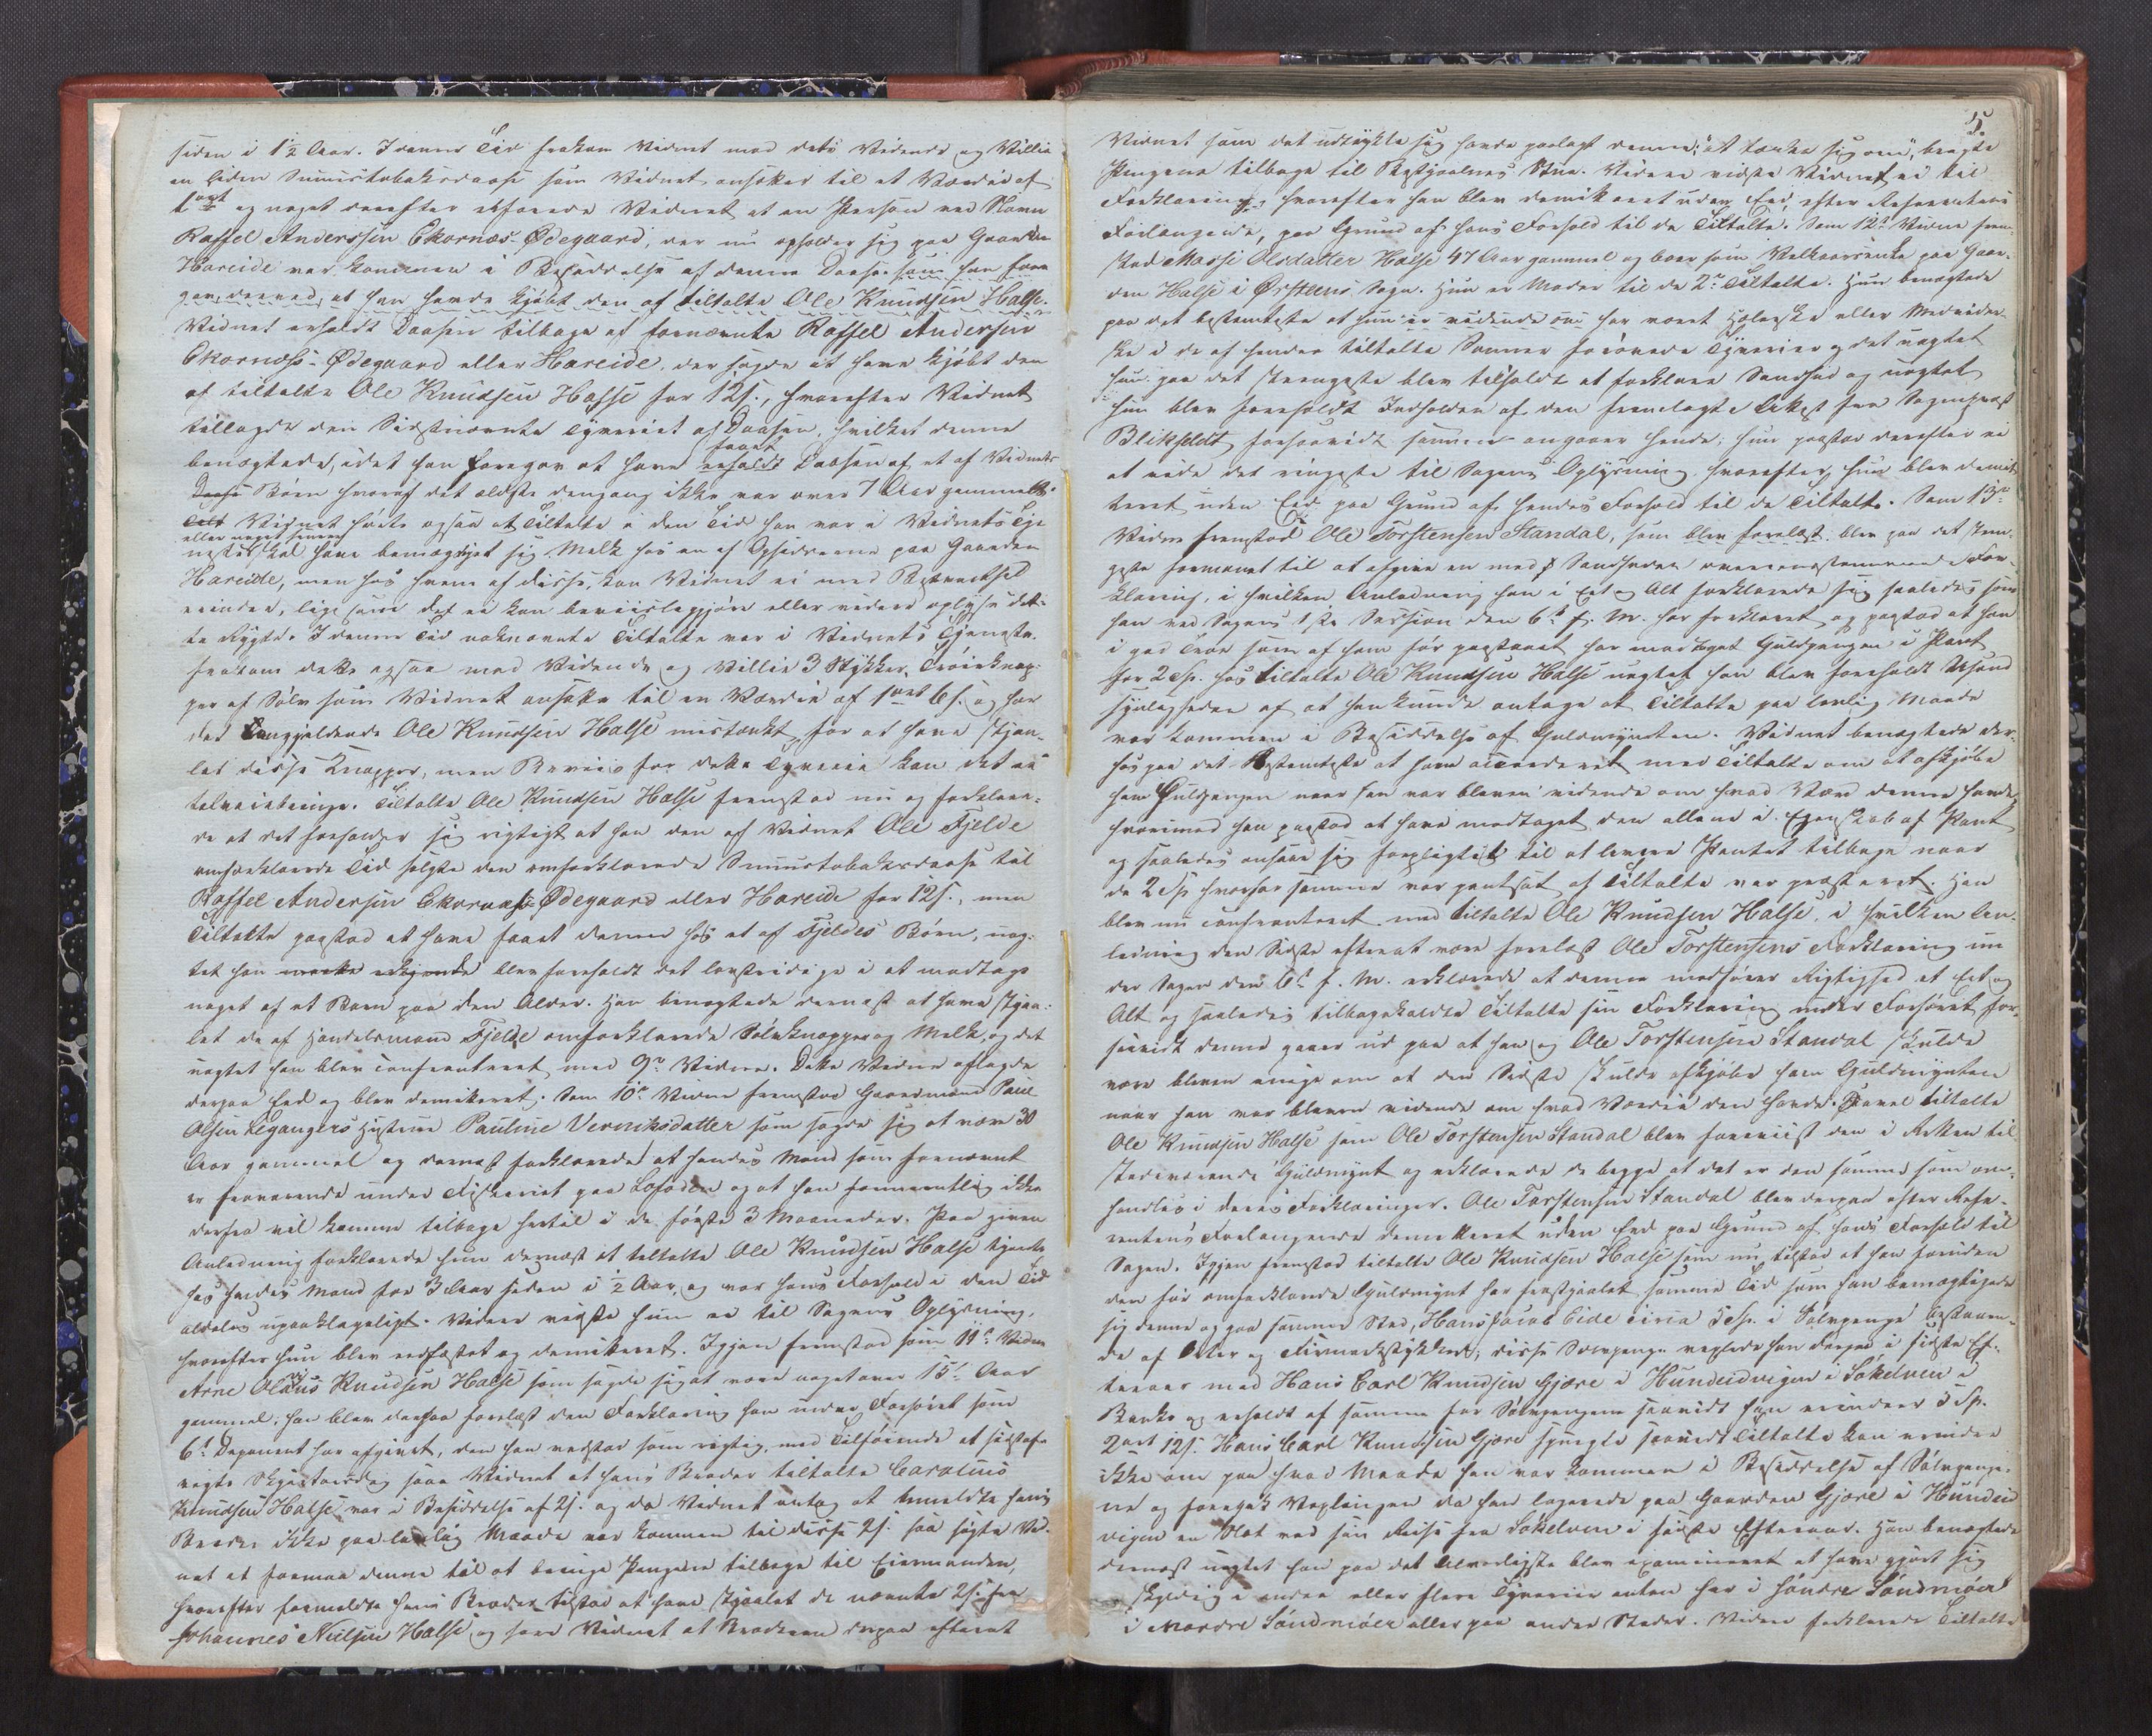 siden i 1½ Aar. I denne Tid frakom Vidnet mod dets Vidende og Villie
en liden Snuustobaksdaase som Vidnet ansætter til et Værd af
1 ort og noget derefter erfarede Vidnet at en Person ved Navn
Raffel Anderssen Ekornæs-Ødegaard, der nu opholder sig paa Gaarden
Hareide var kommen i Besiddelse af denne Daase som han fore
gav derved, at han havde kjøbt den af tiltalte Ole Knudsen Halse.
Vidnet erholdt Daasen tilbage af fornævnte Raffel Andersen
Ekornæs-Ødegaard eller Hareide, der sagde at have kjøbt den
af tiltalte Ole Knudsen Halse for 12 s., hvorefter Vidnet
tillagde den Sidstnævnte Tyveriet af Daasen, hvilket denne
benægtede, idet han foregav at have erholdt faaet Daasen af et af Vidnets
Daase Børn hvoraf det ældste dengang ikke var over 7 Aar gammelt.
Vidnet hørte ogsaa at Tiltalte i den Tid han var i Vidnets Tje
eller noget senere
neste skal have bemægtiget sig Melk hos en af Opsidderne paa Gaarden
Hareide, men hos hvem af disse, kan Vidnet ei med Bestemthed
erindre, lige som det ei kan beviisliggjøre eller videre oplyse det-
te Rygte. I denne Tid naknævnte Tiltalte var i Vidnets Tjeneste
frakom dette ogsaa mod Vidende og Villie 3 Stykker Trøieknap-
per af Sølv som Vidnet ansætte til en Værdie af 1 ort 6 s. og har
det Angjældende Ole Knudsen Halse mistænkt for at have stjaa-
let disse Knapper, men Beviis for dette Tyverie kan det ei
tilveiebringe. Tiltalte Ole Knudsen Halse fremstod nu og forklare-
de at det forholder sig rigtigt at han den af Vidnet Ole Fjelde
omforklarede Tid solgte den omforklarede Snuustobaksdaase til
Raffel Andersen Ekornæs-Ødegaard eller Hareide for 12 s., men
Tiltalte paastod at have faaet denne hos et af Fjeldes Børn, uag-
tet han blev foreholdt det lovstridige i at modtage
noget af et Barn paa den Alder. Han benægtede dernæst at have stjaa-
let de af Handelsmand Fjelde omforklarede Sølvknapper og Melk, og det
uagtet han blev confronteret med 9de Vidne. Dette Vidne aflagde
derpaa Eed og blev demitteret. Som 10de Vidne fremstod Gaardmand Paul
Olsen Legangers Hustrue Pauline Verniksdatter som sagde sig at være 30
Aar gammel og dernæst forklarede at hendes Mand som fornævnt
er fraværende under Fiskeriet paa Lofoden og at han formeentlig ikke
derfra vil komme tilbage hertil i de første 3 Maaneder. Paa given
Anledning forklarede hun dernæst at tiltalte Ole Knudsen Halse tjente
hos hendes Mand for 3 Aar siden i ½ Aar, og var hans Forhold i den Tid
aldeles upaaklageligt. Videre vidste hun ei til Sagens Oplysning,
hvorefter hun blev eedfæstet og demitteret. Igjen fremstod som 11te Vidne
Arne Olaus Knudsen Halse som sagde sig at være noget over 15 Aar
gammel; han blev derpaa forelæst den Forklaring han under Forhøret som
6te Deponent har afgivet, den han vedstod som rigtig, med Tilføiende at sidstaf-
vigte Skjærtorsdag saae Vidnet at hans Broder tiltalte Carolius
Knudsen Halse var i Besiddelse af 2 s. og da Vidnet antog at anmeldte hans
Broder ikke paa lovlig Maade var kommen til disse 2 s. saa søgte Vid-
net at formaae denne til at bringe Pengene tilbage til Eiermanden,
hvorefter formeldte hans Broder tilstod at have stjaalet de nævnte 2 s. fra
Johannes Nielsen Halse og saae Vidnet at Broderen derpaa efterat
5.
Vidnet som det udtrykte sig havde paalagt denne "at tænke sig om", bragte
Pengene tilbage til Bestjaalnes Stue. Videre vidste Vidnet ei til
Forklaring, hvorefter han blev demitteret uden Eed, efter Referentens
Forlangende, paa Grund af hans Forhold til de Tiltalte. Som 12te Vidne frem-
stod Massi Olsdatter Halse 47 Aar gammel og boer som Kaarenke paa Gaar-
den Halse i Ørstens Sogn. Hun er Moder til de 2de Tiltalte. Hun benægtede
paa det bestemteste at hun er vidende om har været Hælerske eller Medvider-
ske i de af hendes tiltalte Sønner forøvede Tyverier og det uagtet
hun paa det strengeste blev tilholdt at forklare Sandhed og uagtet
hun blev foreholdt Indholdet af den fremlagte Attest fra Sognepræst
Blikfeldt forsaavidt samme angaaer hende; hun paastod derefter ei
at vide det ringeste til Sagens Oplysning hvorefter hun blev demit-
teret uden Eed paa Grund af hendes Forhold til de Tiltalte. Som 13de
Vidne fremstod Ole Torstensen Standal, som blev forelæst blev paa det stren-
geste formanet til at afgive en med Sandheden overeensstemmende For-
klaring, i hvilken Anledning han i Eet og Alt forklarede sig saaledes som
han ved Sagens 1ste Session den 6te f. M. har forklaret, og paastod at han
i god Troe som af ham før paastaaet har modtaget Guldpengen i Pant
for 2 Sp. hos tiltalte Ole Knudsen Halse uagtet han blev foreholdt Usand
synligheden af at han kunde antage at Tiltalte paa lovlig Maade
var kommen i Besiddelse af Guldmynten. Vidnet benægtede der-
hos paa det Bestemteste at have accorderet med Tiltalte om at afkjøbe
ham Guldpengen naar han var bleven vidende om hvad Værd denne havde,
hvorimod han paastod at have modtaget den allene i Egenskab af Pant
og saaledes ansaae sig forpligtet til at levere Pantet tilbage naar
de 2 Sp. hvorfor samme var pantsat af Tiltalte var præsteret. Han
blev nu confronteret med tiltalte Ole Knudsen Halse, i hvilken An-
ledning den Sidste efterat være forelæst Ole Torstensens Forklaring un-
der Sagen den 6te f. M. erklærede at denne medfører Rigtighed et Eet og
Alt og saaledes tilbagekaldte Tiltalte sin Forklaring under Forhøret for-
saavidt denne gaaer ud paa at han og Ole Torstensen Standal skulde
være bleven enige om at den Sidste skulde afkjøbe ham Guldmynten
naar han var bleven vidende om hvad Værdie den havde. Saavel tiltalte
Ole Knudsen Halse som Ole Torstensen Standal blev foreviist den i Retten til-
stedeværende Guldmynt og erklærede de begge at det er den samme som om-
handles i deres Forklaringer. Ole Torstensen Standal blev derpaa efter Refe-
rentens Forlangende demitteret uden Eed paa Grund af hans Forhold til
Sagen. Igjen fremstod tiltalte Ole Knudsen Halse som nu tilstod at han foruden
den før omforklarede Guldmynt har frastjaalet samme Tid som han bemægtigede
sig denne og paa samme Sted, Hans Jacob Eide circa 5 Sp. i Sølvpenge bestaaen-
de af Orter og Firmarkstykker; disse Sølvpenge vexlede han derpaa i sidste Ef-
teraar med Hans Carl Knudsen Gjære i Hundeidvigen i Søkelven i
Banko og erholdt af samme for Sølvpengene saavidt han erindrer 3 Sp.
2 ort 12 s. Hans Carl Knudsen Gjære spurgte saavidt Tiltalte kan erindre
ikke om paa hvad Maade han var kommen i Besiddelse af Sølvpenge-
ne og foregik Vexlingen da han logerede paa Gaarden Gjære i Hundeid
vigen en Nat ved sin Reise fra Søkelven i sidste Efteraar. Han benægtede
dernæst uagtet han paa det alvorligste blev examineret at have gjort sig
skyldig i andre eller flere Tyverier enten her i Søndre Søndmøer
i Nordre Søndmøer eller paa andre Steder. Videre forklarede Tiltalte